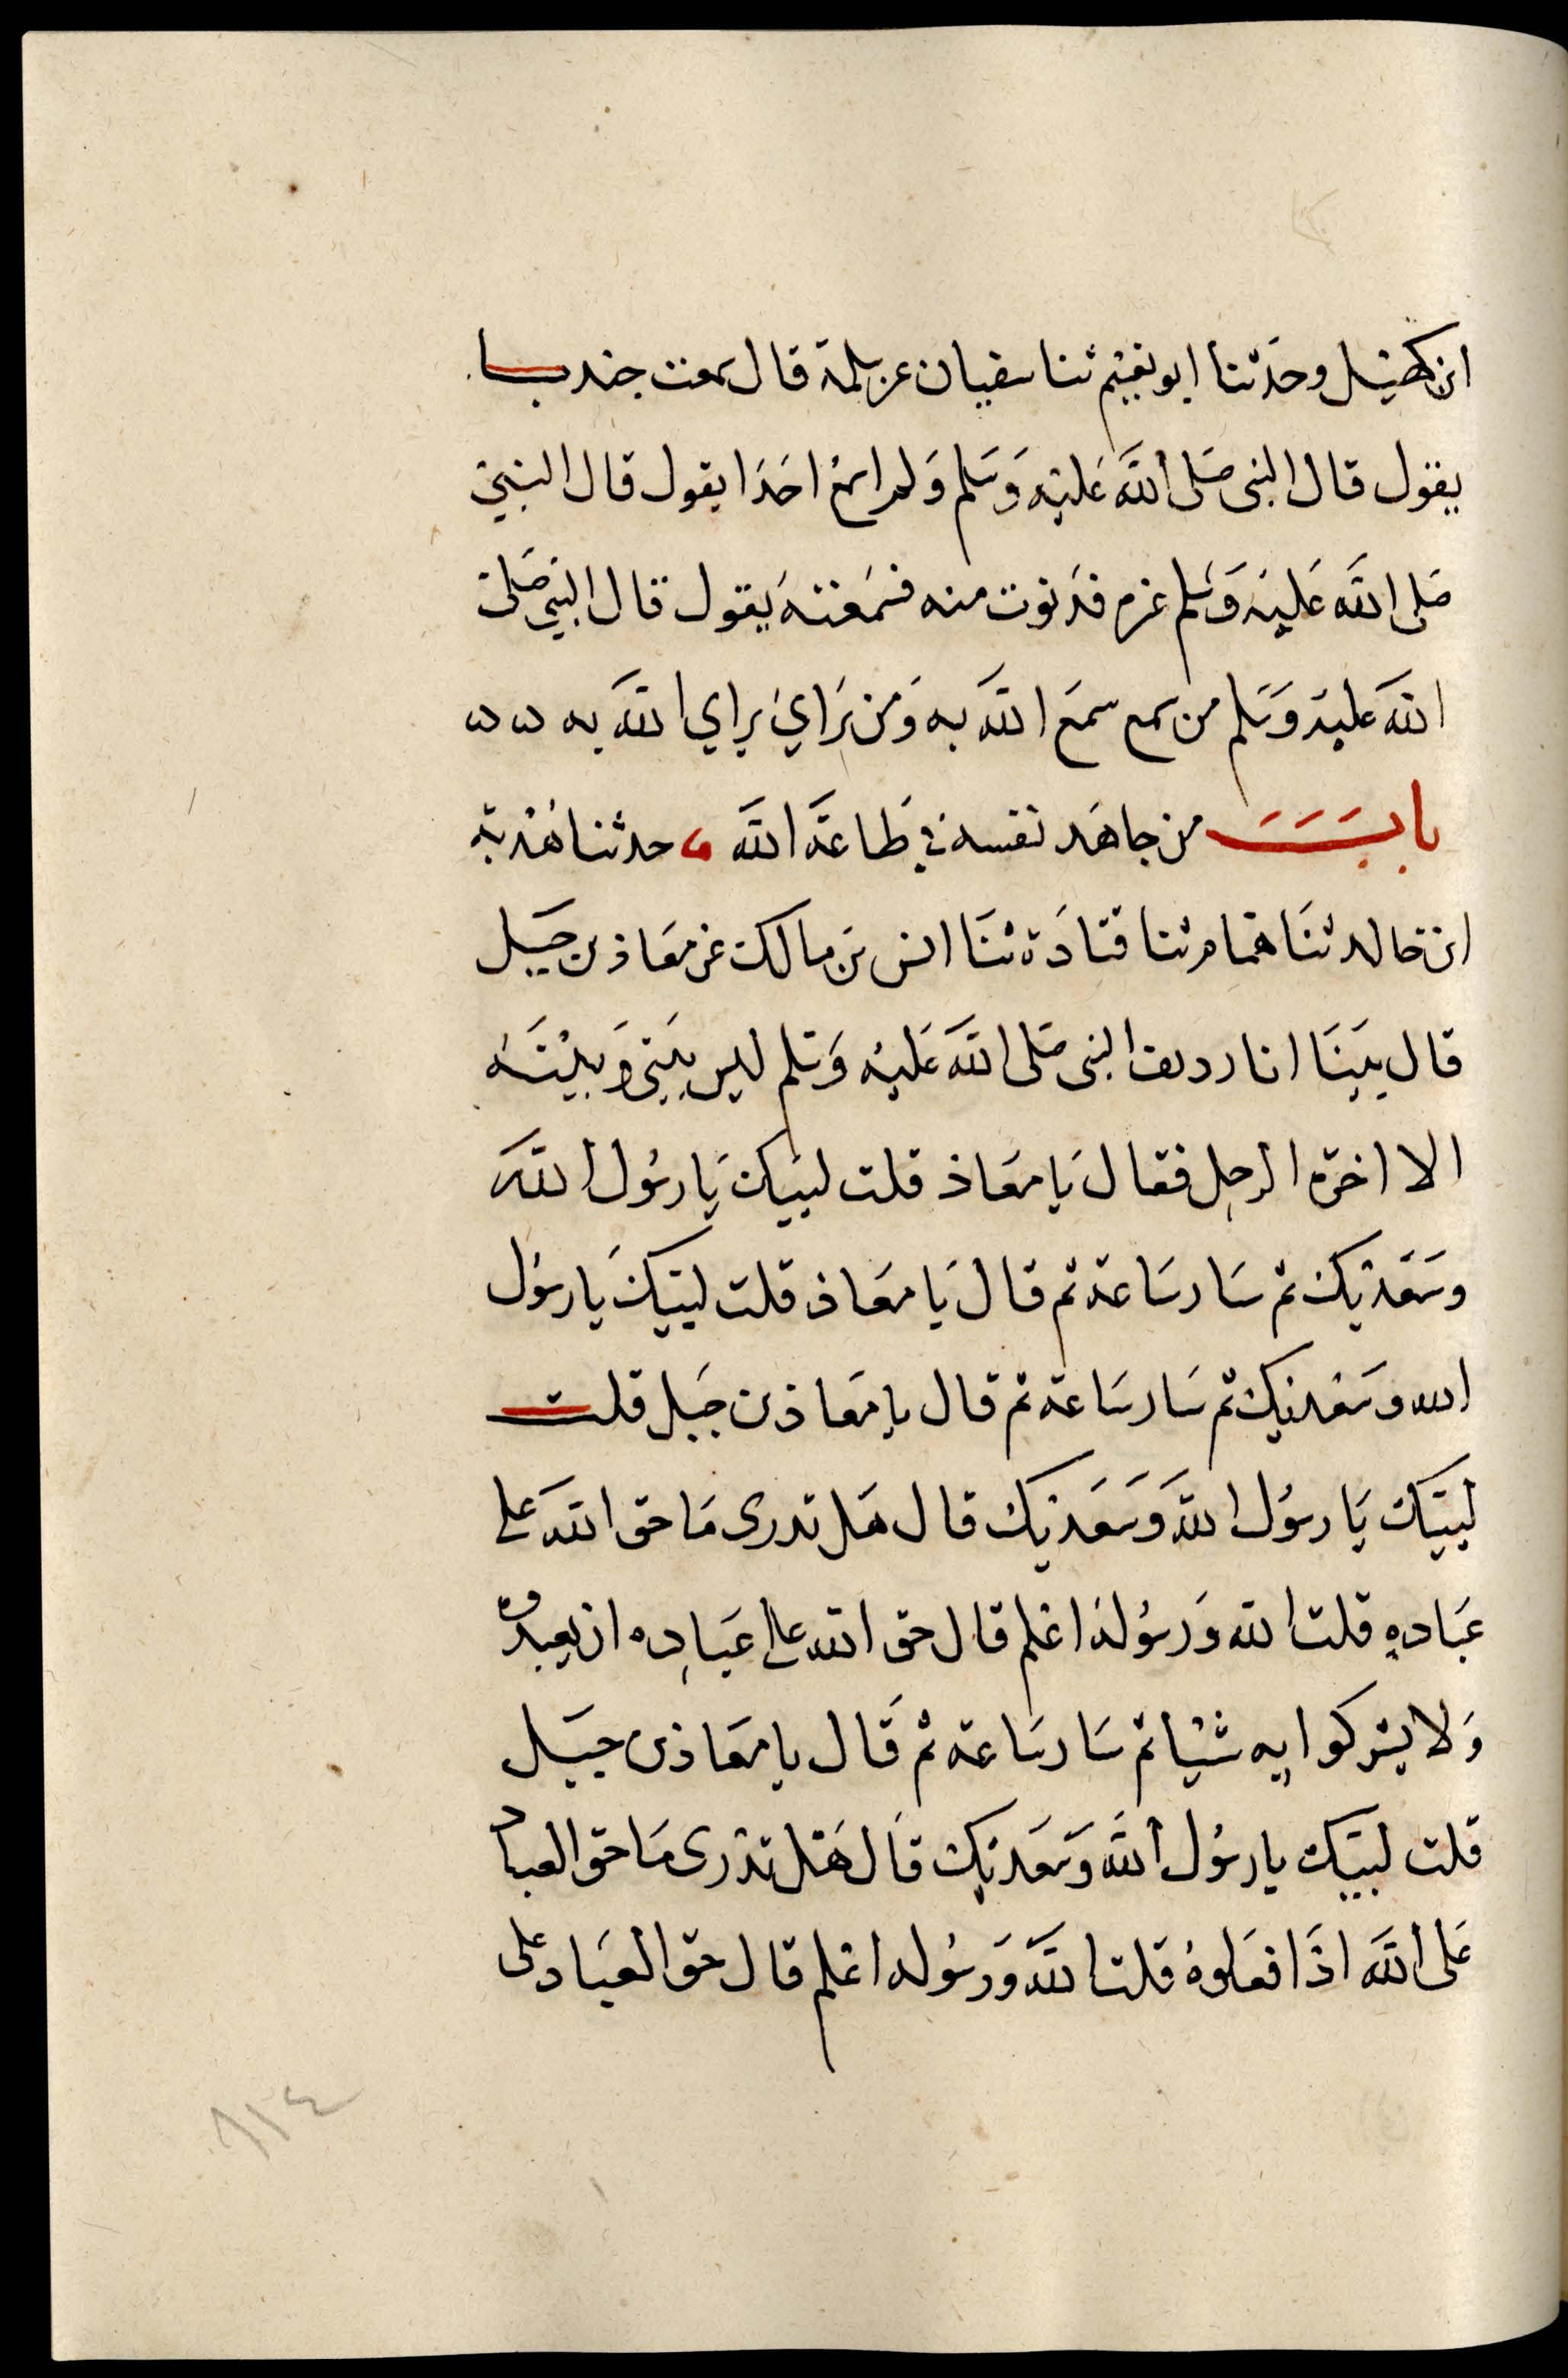 ابن كهيل وحدثنا ابو نعيم ثنا سفيان عن سلمة قال سمعت جندبا
يقول قال النبى صَلى الله عَليْه وَسَلم وَلم اسمع احَدَا يقول قال النبي
صَلى الله عَليْه وَسَلم غيره فدنوت منه فسَمعْته يَقول قال النبي صَلى
الله عَليه وَسَلم من سمع سمعَ الله به وَمن يُرَايي يرايي الله به
باب من جاهَد نفسه في طَاعَة الله حدثنا هُدْبة
ابن خالد ثنَا همام ثنا قتادَة ثنَا انس بن مالك عن معَاذ بن جبَل
قال بَينَا انا رديف النبى صَلى الله عَليْه وَسَلم ليس بَيني وَبيْنَه
الا اخرة الرحل فقال يَا معَاذ قلت لبيك يَا رسُول الله
وسَعْديك ثم سَار سَاعة ثم قال يَا معَاذ قلت لبيكَ يَا رسُول
الله وسَعْديك ثم سَار سَاعة ثم قال يا معَاذ بن جبَل قلت
لبيَك يَا رسُول الله وَسَعْديك قال هَل تدرى مَا حق الله عَلى
عبَاده قلت الله وَرسُوله اعْلم قال حق الله على عبَاده ان يعبدوه
وَلا يشركوا به شيْيا ثم سَار سَاعة ثم قَال يا معَاذ بن جبَل
قلت لبيك يا رسُول الله وَسَعْديك قَال هَل تدْرى مَا حق العباد
عَلى الله اذَا فعَلوهُ قلت الله وَرسُوله اعْلم قال حق العبَاد على
٨١٤